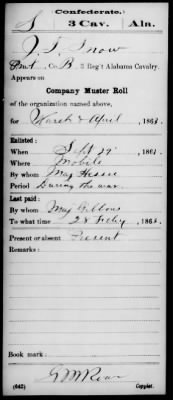 Confederate.
S 3 Cav. Ala.
J. T. Snow
Pvt, Co. B, 3 Reg't Alabama Cavalry.
Appears on
Company Muster Roll
of the organization named above,
for March & April, 186
Enlisted:
When Sept 29, 1861.
Where Mobile
By whom Maj Hessee
Period During the war
Last paid:
By whom Maj Gibbons
To what time 28 Feby, 186
Present or absent Present
Remarks:
Book mark:
(642)
Copyist.